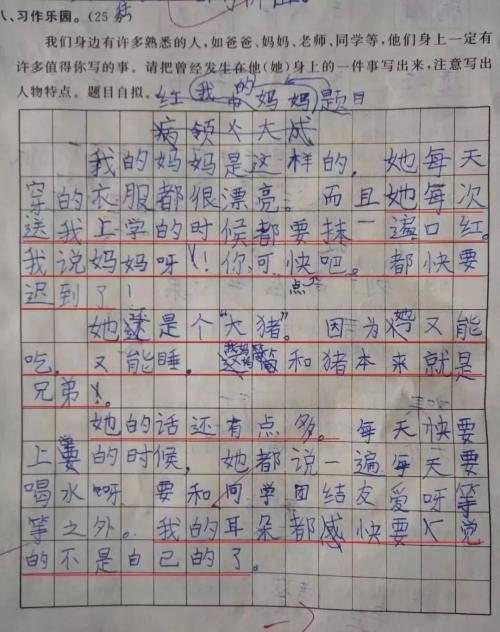 八、习作乐园。(25分)
我们身边有许多熟悉的人,如爸爸、妈妈、老师、同学等,他们身上一定有
许多值得你写的事。请把曾经发生在他(她)身上的一件事写出来,注意写出
人物特点。题目自拟。
我的妈妈 题目
我的妈妈是这样的,她每天
穿的衣服都很漂亮。而且她每次
送我上学的时候都要抹一遍口红。
我说妈妈呀!你可快点吧。都快要
迟到了!
她还是个“大猪”。因为又能
吃,又能睡,和猪本来就是
兄弟。
她的话还有点多。每天快要
上学的时候,她都说一遍每天要
喝水呀要和同学团结友爱呀等
等之外。我的耳朵都感快要觉
的不是自己的了。